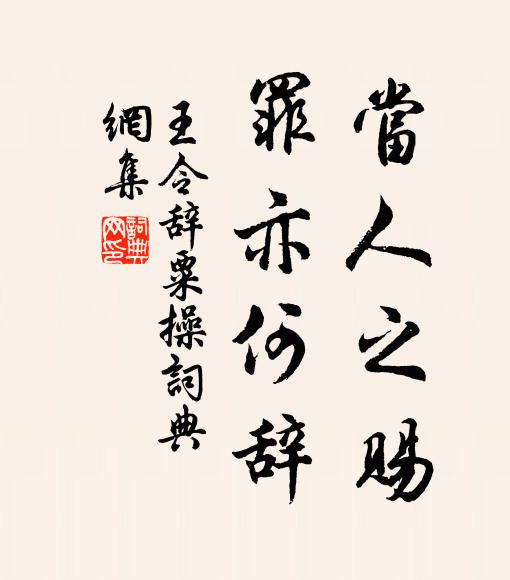 當人之賜
罪亦何辞
王令辞粟操詞典
網集
詞典
网印